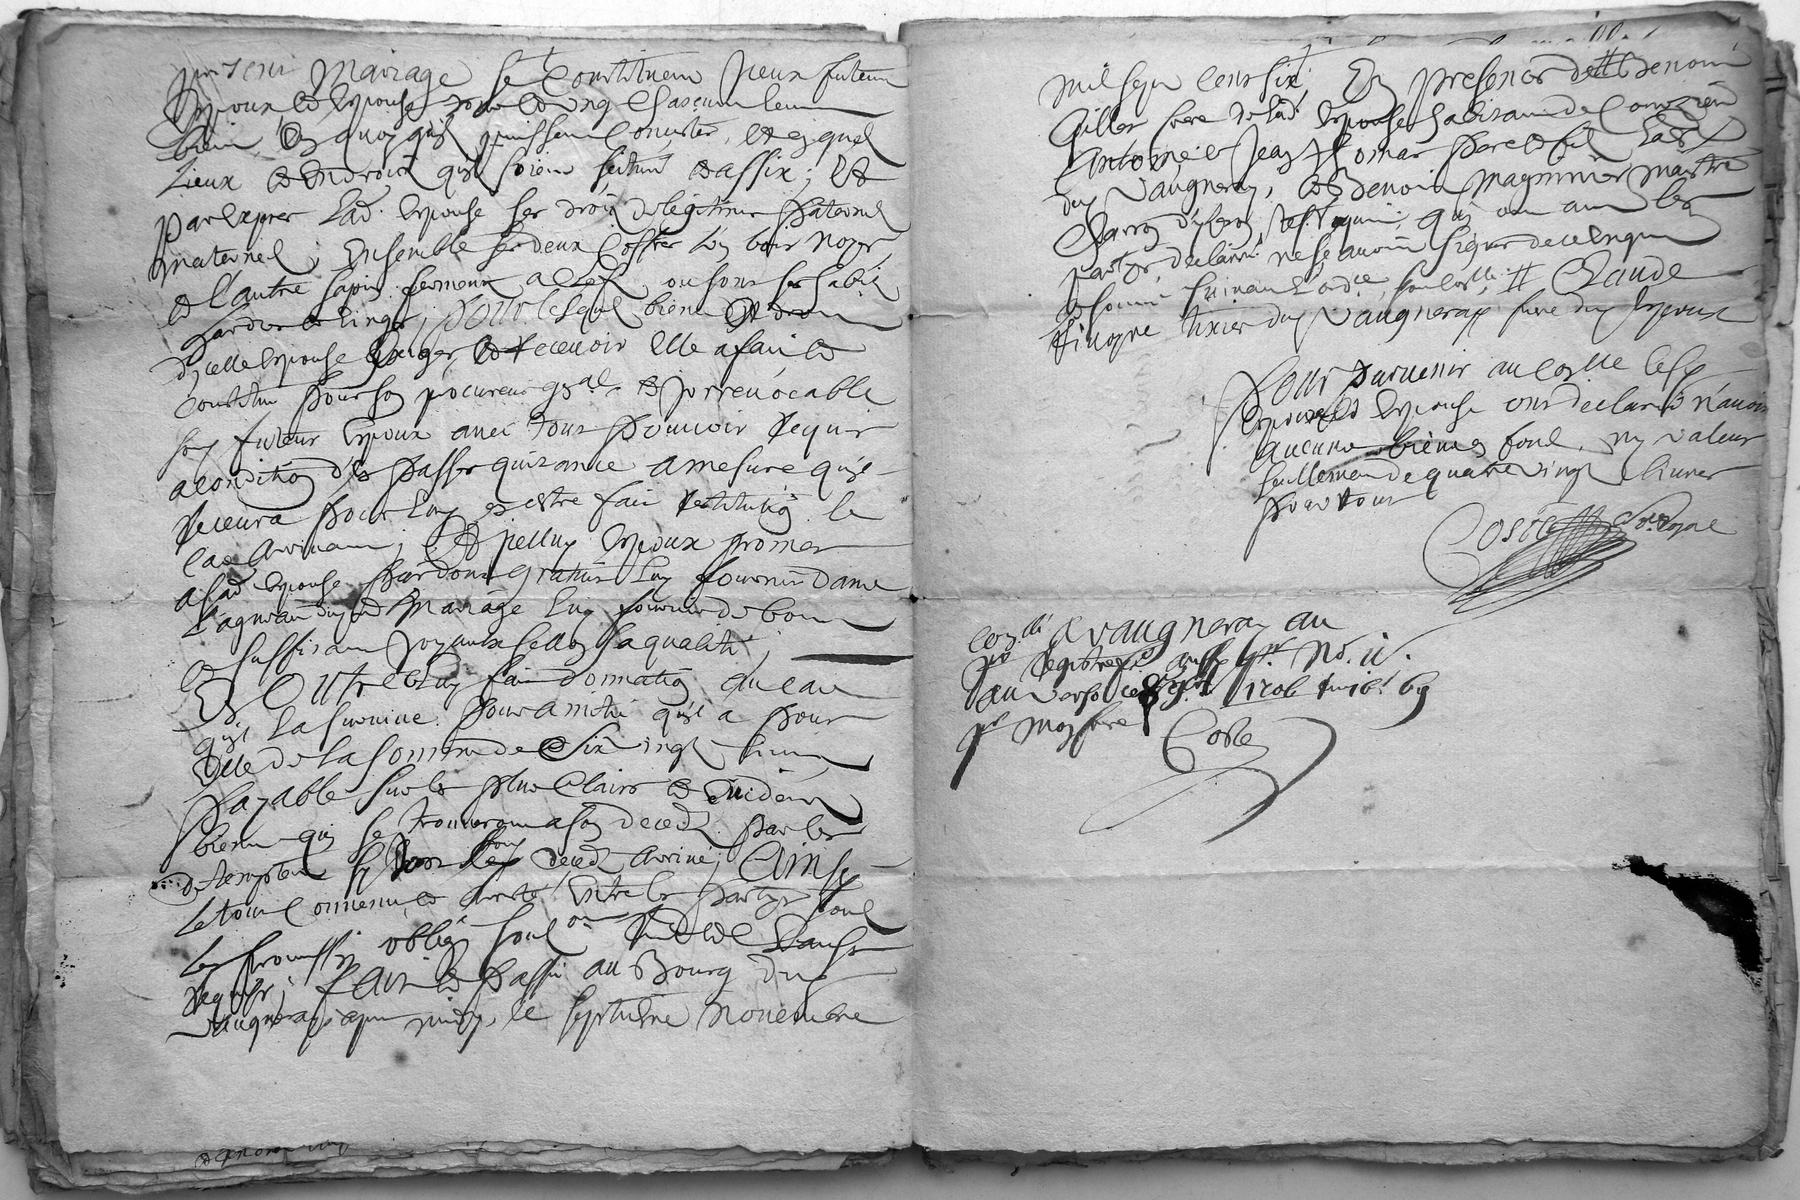 present Mariage se Constituent Iceux futeur
Espoux Et Espouse tous Et Ung Chascuns leurs
biens En quoy qu'ilz puissent Consister, Et en quel
Lieux Et Endroict qu'ilz soient scitués Et assix; Et
par Expres Lad. Espouse ses droictz de legitime paternel
maternel; Ensemble ses deux Coffres L'ung bois noyer
Et l'autre sapin fermeux a Clefz, ou sont ses habitz
hardes Et linges; pour lesquels biens Et droictz
d'icelle Espouse Exiger, Et recevoir Elle a fait Et
Constitué pour son procureur g^nal Et jrrevocable
son futeur Espoux avec tout pouvoir requis
a condition d'En passer quitance a mesure qu'il
recevra pour Luy En estre fait restitution le
cas arrivant; Et jcelluy Espoux promet
a lad. Espouse
Mariage Luy fournir de bons
Et suffisans Joyaux sellon sa qualité;
Et Outre Luy fait donnation au cas
qu'il La survive. pour amitié qu'il a pour
Elle de La somme de Six vingt livres
payable sur les plus Clairs Et Evidens
biens qui se trouveront a son decedz. par les
detempteurs decedz arrivé; Ainsy
le tout Convenu, Et arresté Entre les partyes soubz
Les promission oblig^n soub^on Et Clauses
requises; Fait Et Passé au Bourg du
Vaugneray apres midy, le septiesme Novembre
mil sept Cent six; En presence de Benoist
Gilles frere de lad. Espouse habitant de
Antoine Et Jean Thomas pere Et fils
du Vaugneray, Et Benoist Magninier maistre
Charron d'y lieu, tes. requis; qui ont avec les
partyes, declarré ne sçavoir signer de ce Enquis
Et sommé suivant L'ord^ce royalle; # Claude
tixier du Vaugneray frere du Espoux
Pour parvenir au Con^lle lesd.
Espoux Et Espouse ont declaré n'avoir
aucuns biens En fond, ny valeur
seullement de quatre vingt livres
pour tout
Coste No^re Royal
Con^llé a Vaugneray au
p^r registre No. ii.
au verso ce 8 9^bre 1706
p^r moy
Coste